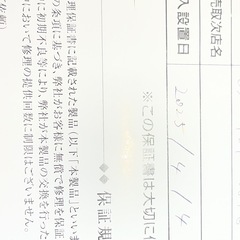 売取次店名
入設置日 2025/4/14
※この保証書は大切に
◆◆ 保証規
理保証書に記載された製品(以下「本製品」といいま
の条項に基づき、弊社がお客様に無償で修理を保証
に初期不良等により、弊社が本製品の交換を行った
において修理の提供回数に制限はございません。
依頼)